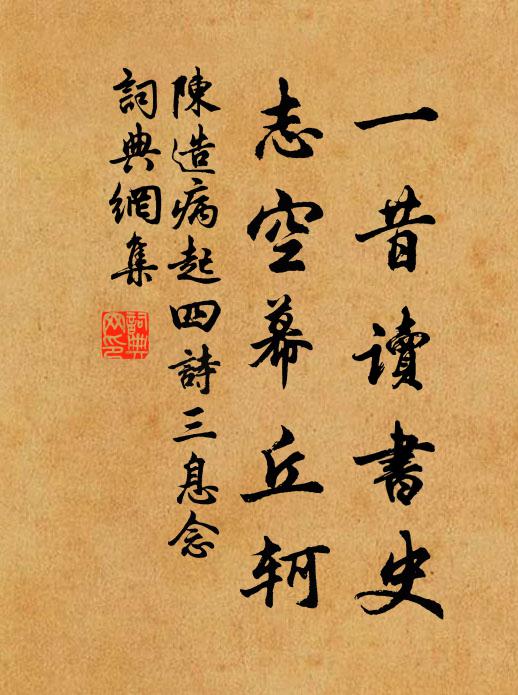 一昔讀書史
志空幕丘軻
陳造病起四詩三息念
詞典網集
詞典網印